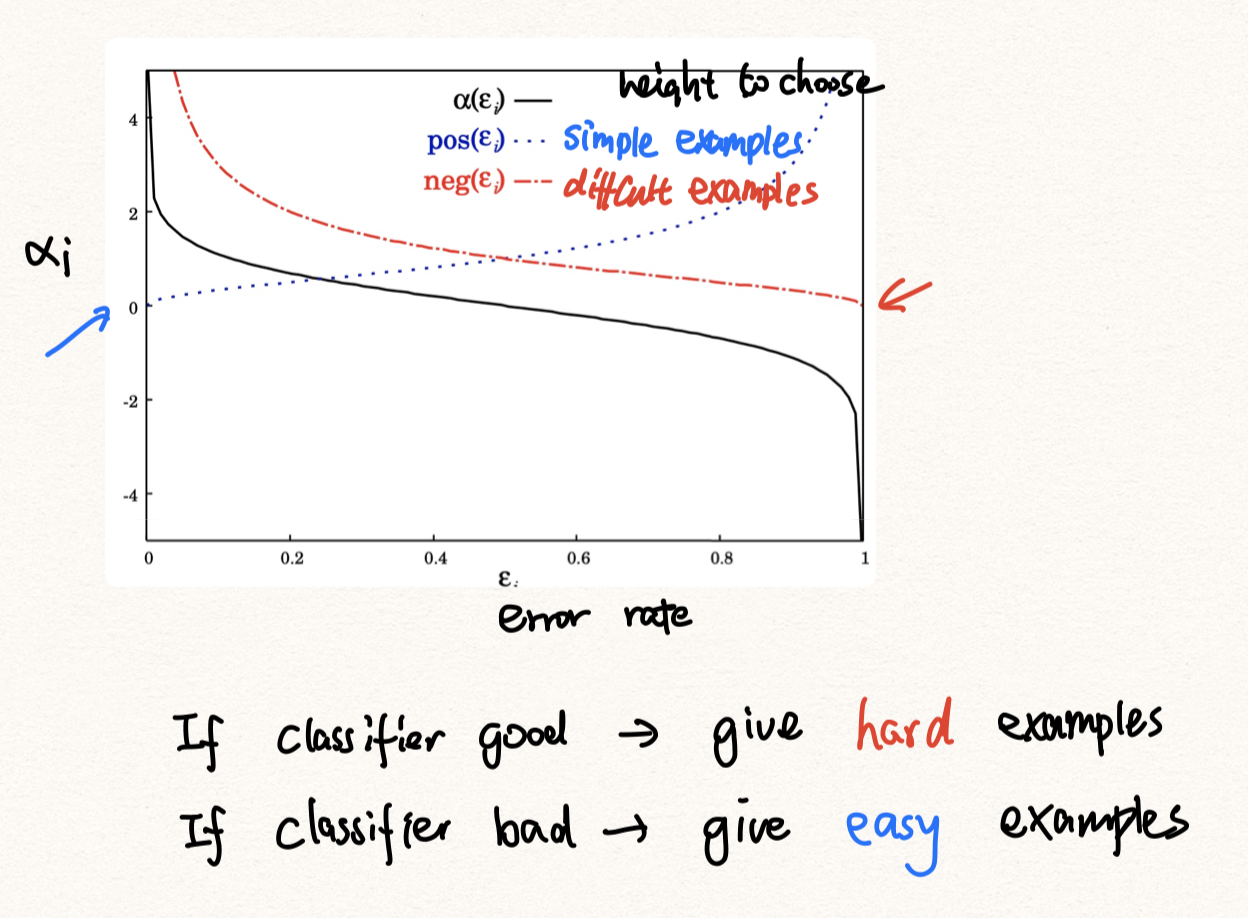 height to choose
α(εᵢ)
pos(εᵢ) simple examples
neg(εᵢ) difficult examples
4
2
0
-2
-4
αi
0 0.2 0.4 0.6 0.8 1
εᵢ
error rate
If classifier good → give hard examples
If classifier bad → give easy examples